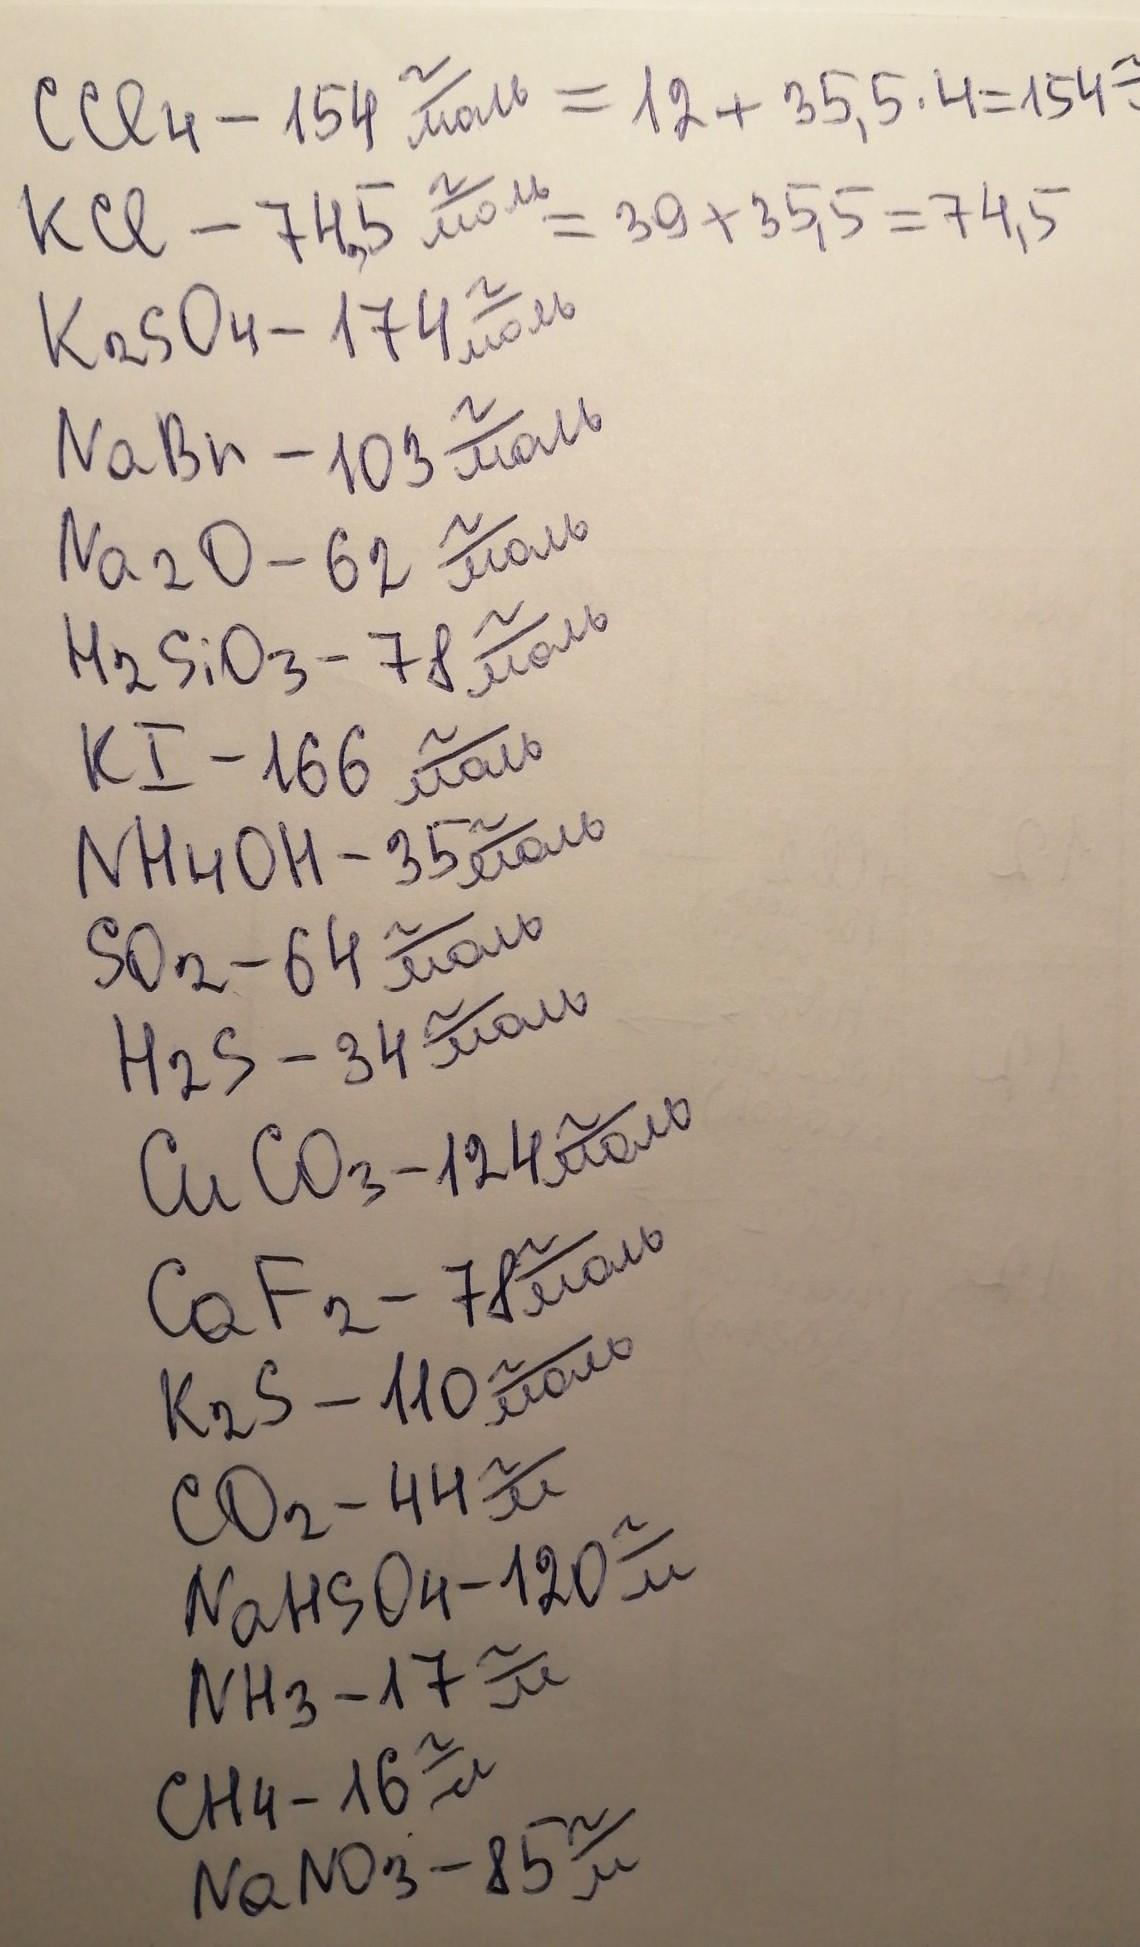 CCl4 - 154 г/моль = 12 + 35,5 · 4 = 154 г
KCl - 74,5 г/моль = 39 + 35,5 = 74,5
K2SO4 - 174 г/моль
NaBr - 103 г/моль
Na2O - 62 г/моль
H2SiO3 - 78 г/моль
KI - 166 г/моль
NH4OH - 35 г/моль
SO2 - 64 г/моль
H2S - 34 г/моль
CuCO3 - 124 г/моль
CaF2 - 78 г/моль
K2S - 110 г/моль
CO2 - 44 г/м
NaHSO4 - 120 г/м
NH3 - 17 г/м
CH4 - 16 г/м
NaNO3 - 85 г/м